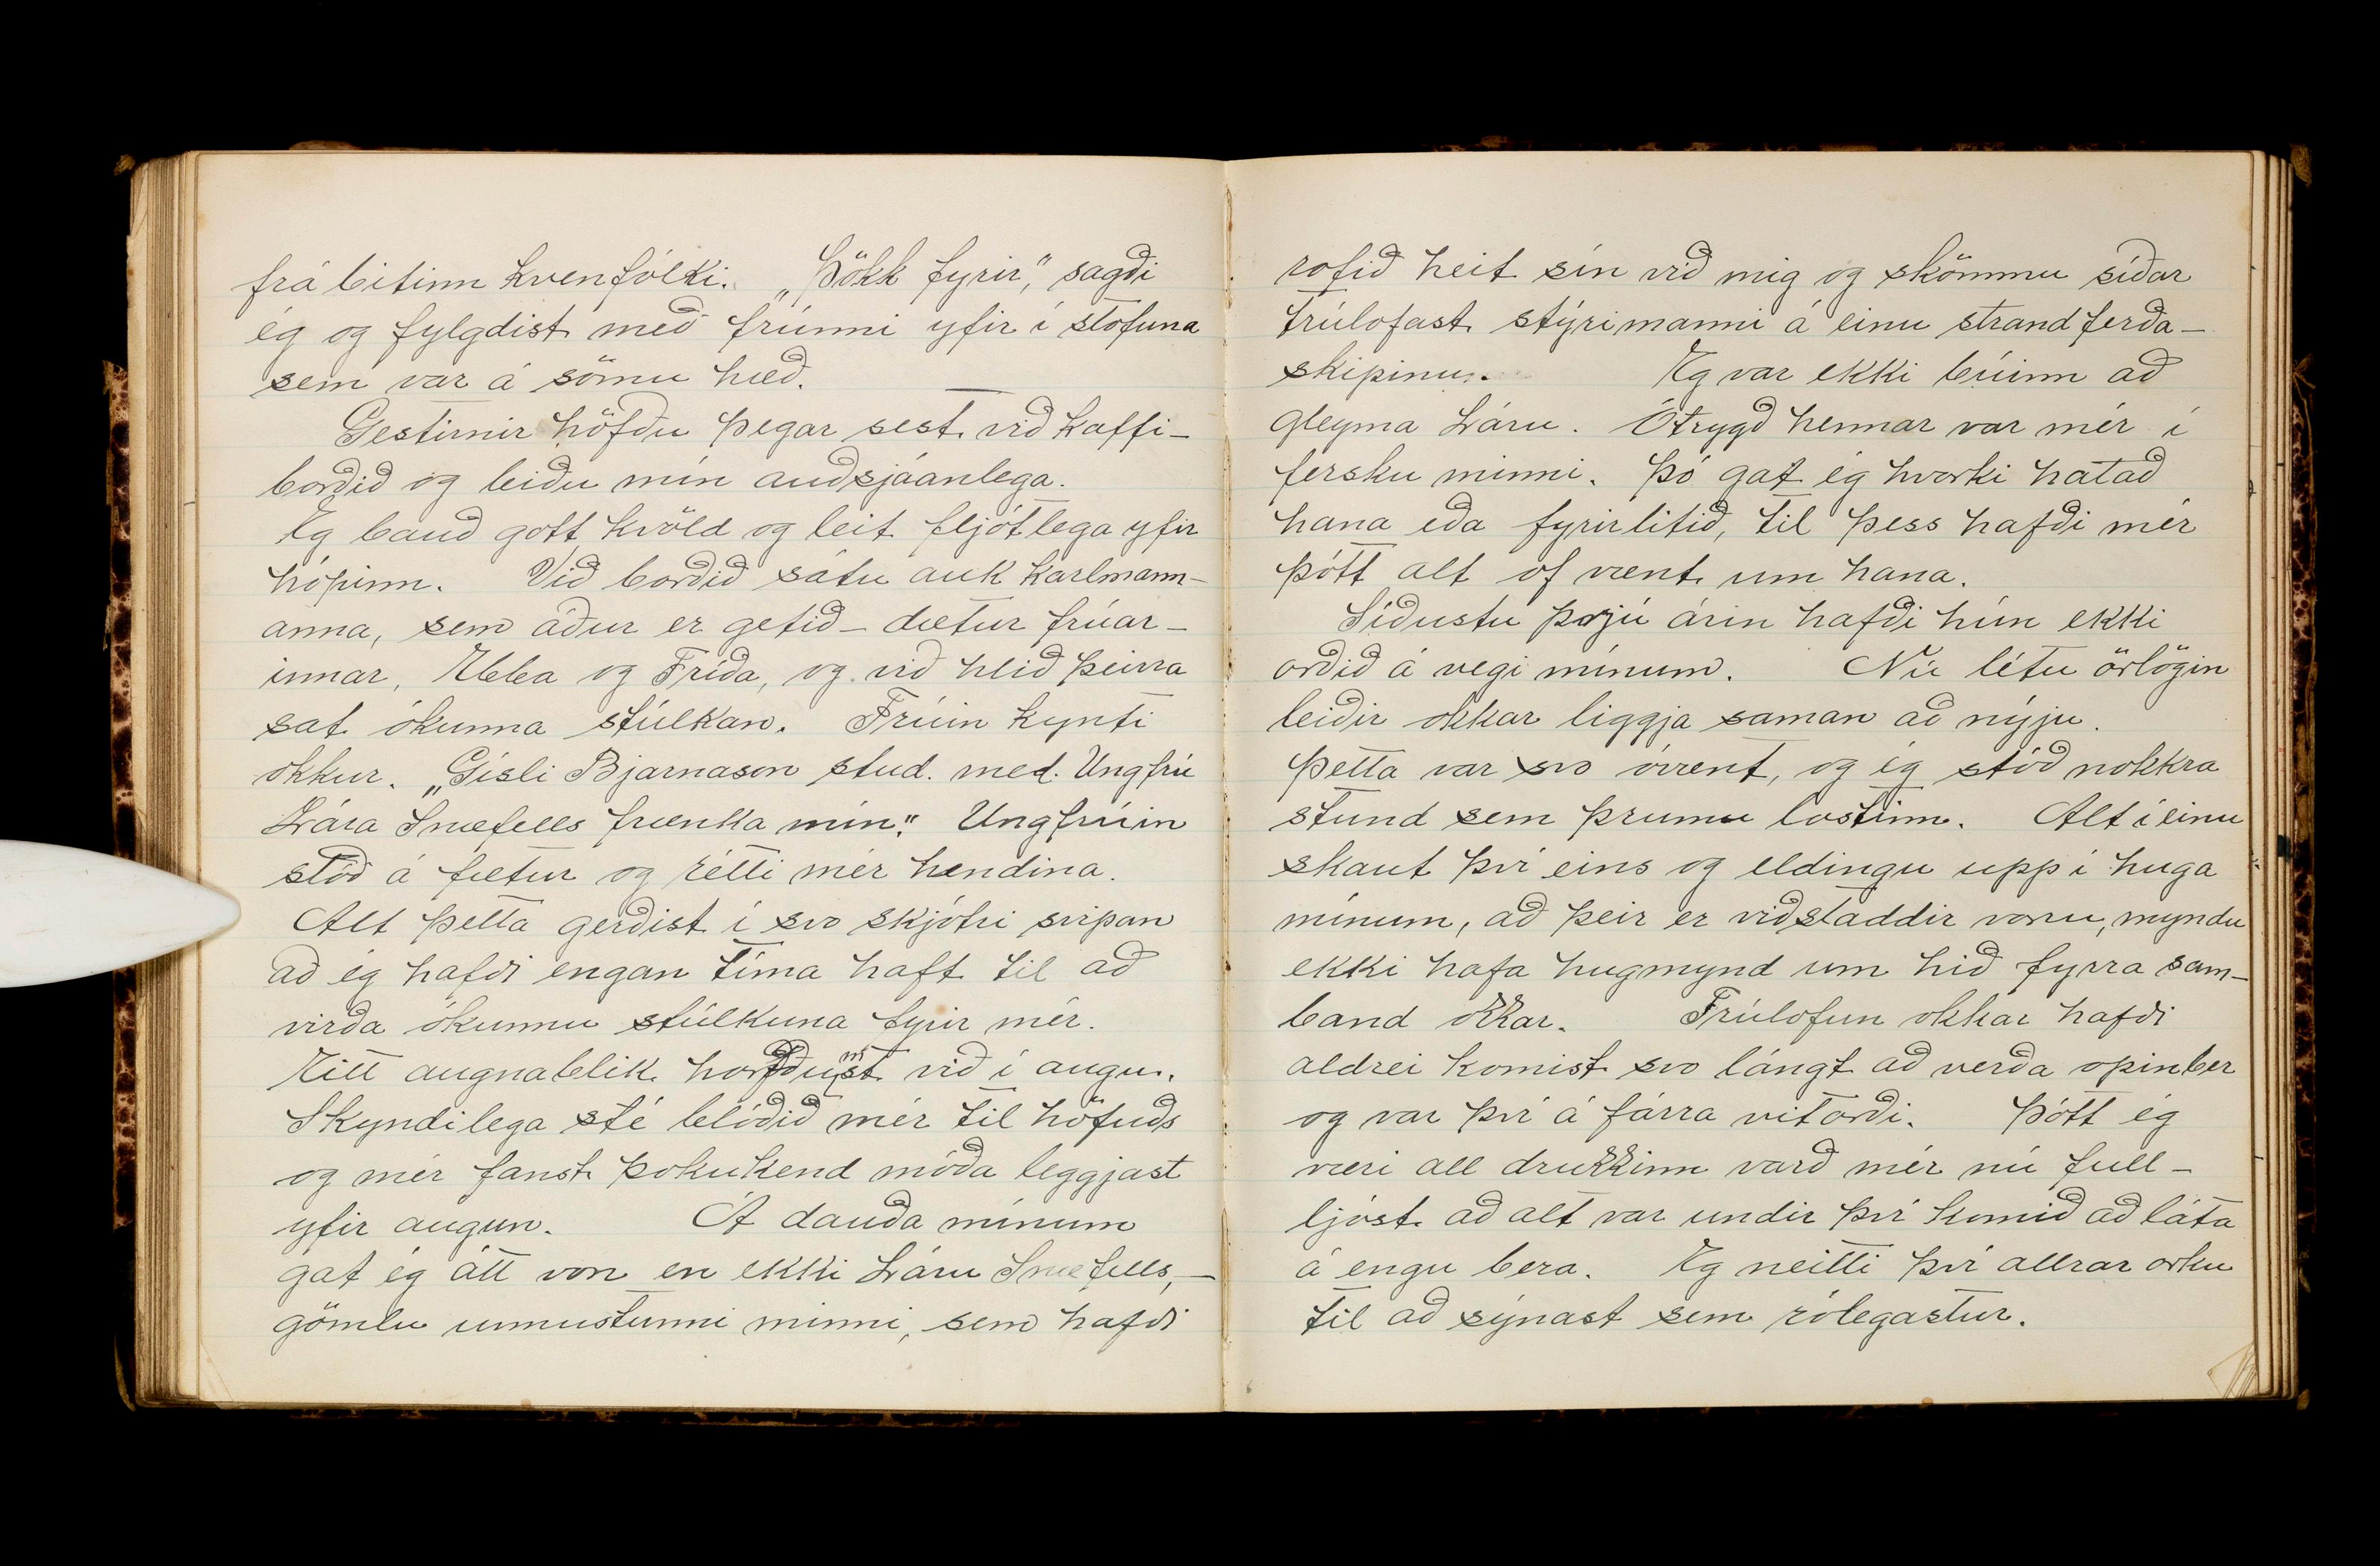 frá bitinn kvenfólki. „Þökk fyrir," sagði
ég og fylgdist með frúnni yfir í stofuna
sem var á sömu hæð.
Gestirnir höfðu þegar sest við kaffi-
borðið og biðu mín auðsjáanlega.
Eg bauð gott kvöld og leit fljótlega yfir
hópinn. Við borðið sátu auk karlmann-
anna, sem áður er getið - dætur frúar-
innar, Ebba og Fríða, og við hlið þeirra
sat ókunna stúlkan. Frúin kynti
okkur. „Gísli Bjarnason stud. med. Ungfrú
Lára Snæfells frænka mín." Ungfrúin
stóð á fætur og rétti mér hendina.
Alt þetta gerðist í svo skjótri svipan
að ég hafði engan tíma haft til að
virða ókunnu stúlkuna fyrir mér.
Eitt augnablik horfðumst við í augu.
Skyndilega sté blóðið mér til höfuðs
og mér fanst þokukend móða leggjast
yfir augun. Á dauða mínum
gat ég átt von en ekki Láru Snæfells, -
gömlu unnustunni minni, sem hafði
rofið heit sín við mig og skömmu síðar
trúlofast stýrimanni á einu strandferða-
skipinu. Eg var ekki búinn að
gleyma Láru. Ótrygð hennar var mér í
fersku minni. Þó gat ég hvorki hatað
hana eða fyrirlitið, til þess hafði mér
þótt alt of vænt um hana.
Síðustu þrjú árin hafði hún ekki
orðið á vegi mínum. Nú létu örlögin
leiðir okkar liggja saman að nýju.
Þetta var svo óvænt, og ég stóð nokkra
stund sem þrumu lostinn. Alt í einu
skaut því eins og eldingu upp í huga
mínum, að þeir er viðstaddir voru, myndu
ekki hafa hugmynd um hið fyrra sam-
band okkar. Trúlofun okkar hafði
aldrei komist svo lángt að verða opinber
og var því á fárra vitorði. Þótt ég
væri all drukkinn varð mér nú full-
ljóst að alt var undir því komið að láta
á engu bera. Eg neitti því allrar orku
til að sýnast sem rólegastur.